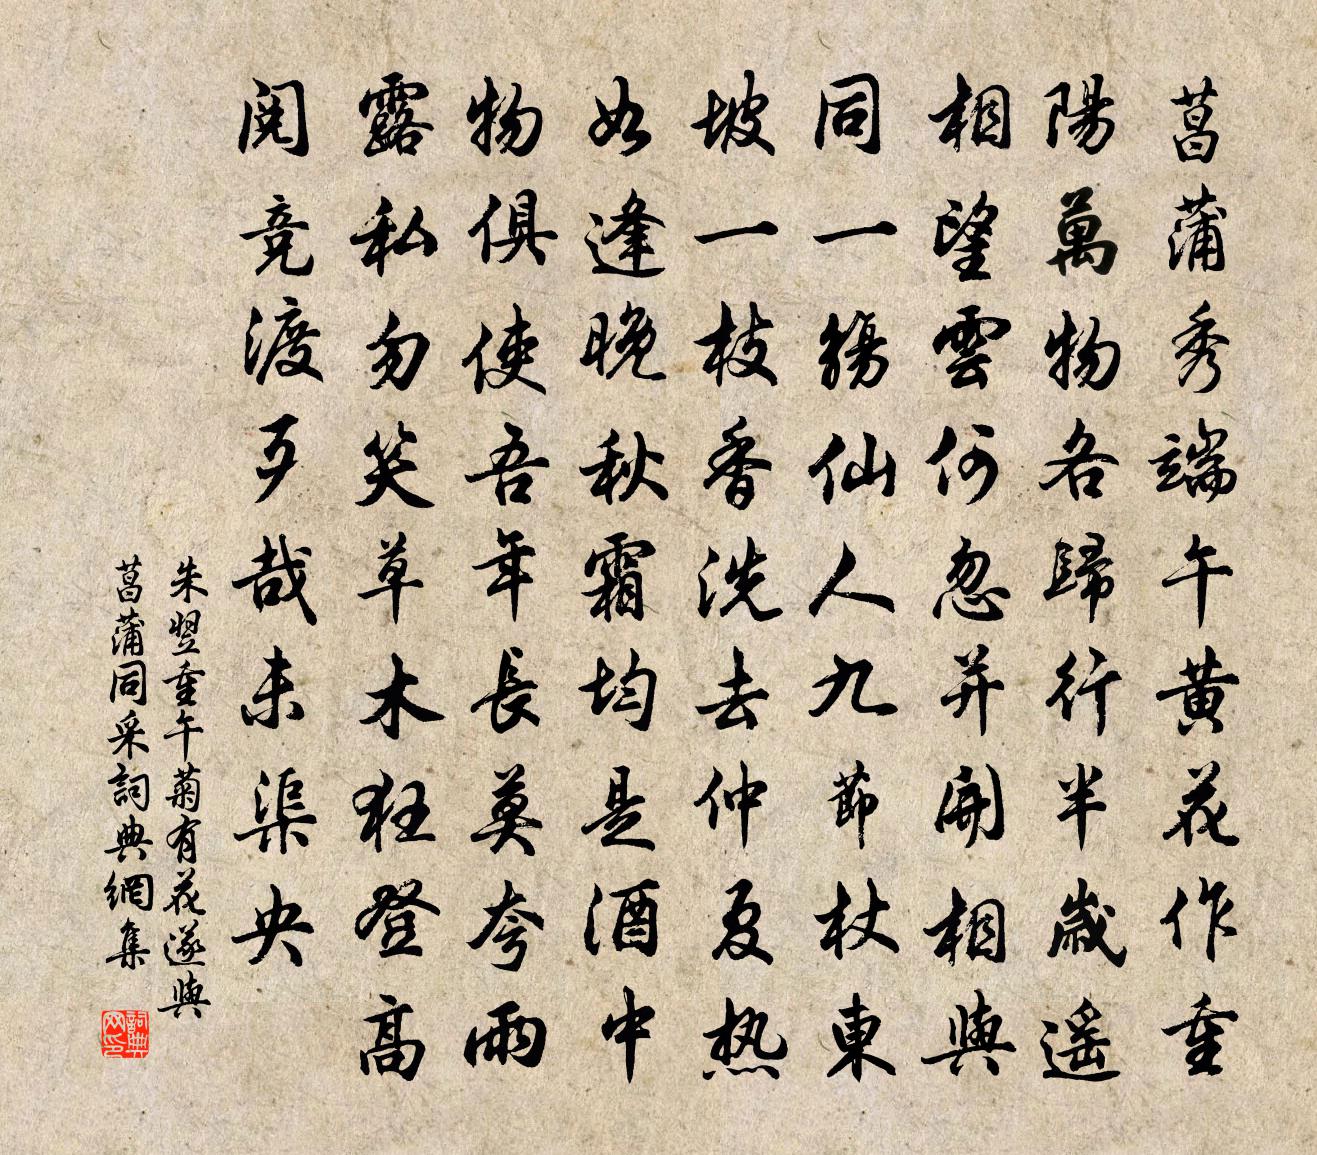 菖蒲秀端午黄花作重
陽萬物各歸行半歲遥
相望雲何忽并開相與
同一觴仙人九節杖東
坡一枝香洗去仲夏热
如逢晚秋霜均是酒中
物俱使吾年長莫夸雨
露私勿笑草木狂登高
閱竞渡哉未渠央
朱翌重午菊有花遂與
菖蒲同采詞典網集
詞典
网印